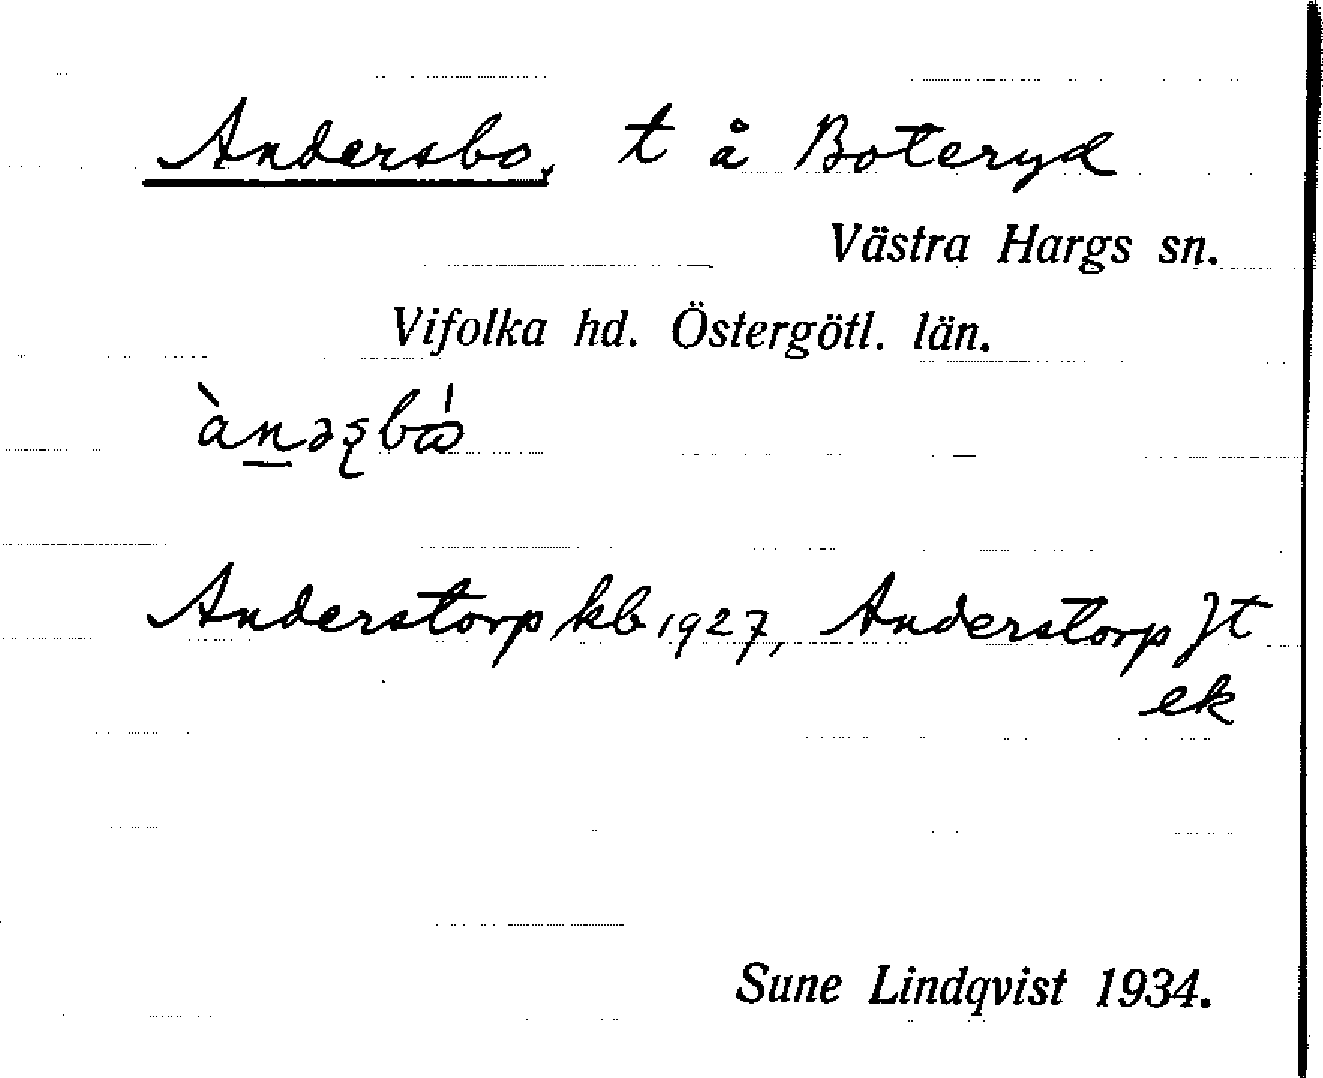 Andersbo, t å Boteryd
Västra Hargs sn.
Vifolka hd. Östergötl. län.
Anderstorp kb 1927, Anderstorp Jt
ek
Sune Lindqvist 1934.